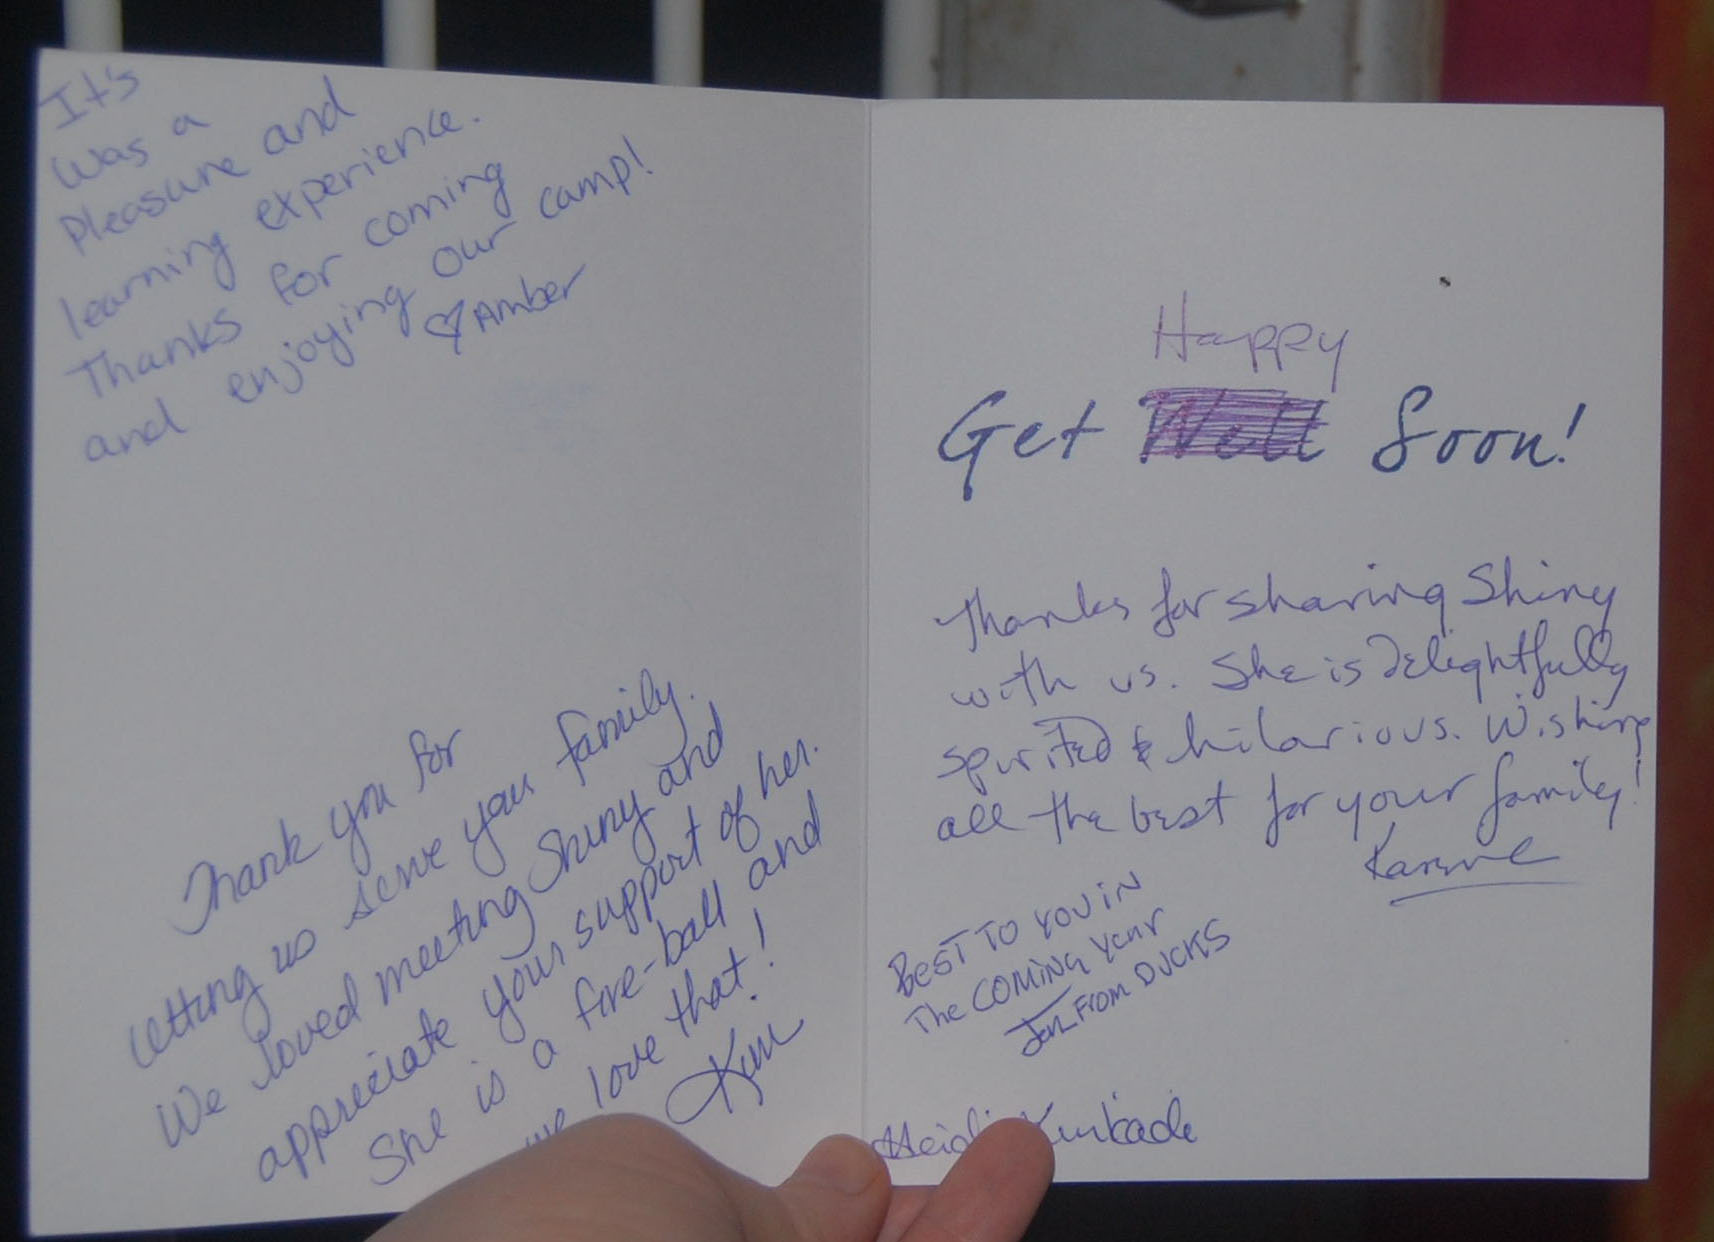 It's
was a
Pleasure and
learning experience.
Thanks for coming
and enjoying our camp!
♡Amber
Thank you for
letting us serve your family.
We loved meeting Shiny and
appreciate your support of her.
She is a fire-ball and
we love that!
Kim
Happy
Get Well Soon!
Thanks for sharing Shiny
with us. She is delightfully
spirited & hilarious. Wishing
all the best for your family!
BEST TO YOU IN
The COMING Year
Jen From DUCKS
Heidi Kinkade